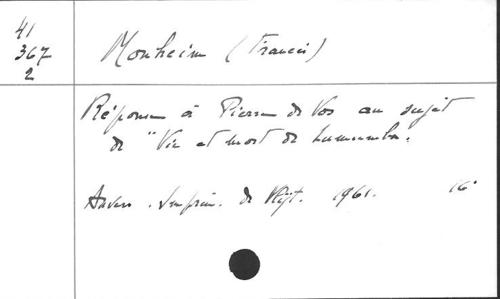 41
367
2
Monheim (Francis)
Réponse à Pierre de Vos au sujet
de "Vie et mort de Lumumba.
Anvers. Imprim. de Vlijt. 1961. 16°